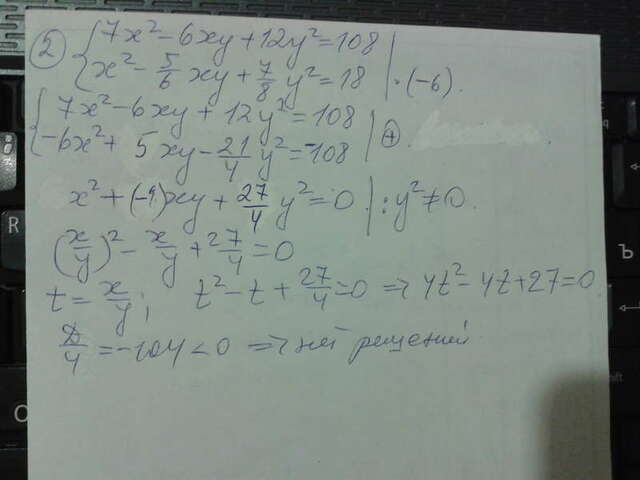 ② { 7x² - 6xy + 12y² = 108
x² - 5/6 xy + 7/8 y² = 18 | · (-6).
{ 7x² - 6xy + 12y² = 108
-6x² + 5xy - 21/4 y² = -108 | ⊕.
x² + (-1)xy + 27/4 y² = 0 | : y² ≠ 0.
(x/y)² - x/y + 27/4 = 0
t = x/y; t² - t + 27/4 = 0 => 4t² - 4t + 27 = 0
D/4 = -104 < 0 => нет решений.
R
Ъ